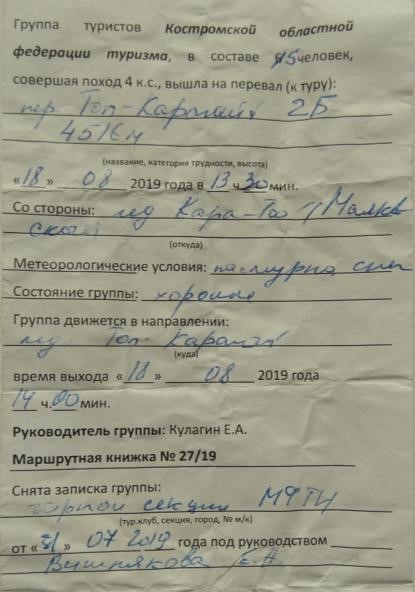 Группа туристов Костромской областной
федерации туризма, в составе 15 человек,
совершая поход 4 к.с., вышла на перевал (к туру):
пер. Топ-Карагай 2Б
4516 м
(название, категория трудности, высота)
«18» 08 2019 года в 13 ч. 30 мин.
Со стороны: лед Кара-Тоо (Малков
ский)
(откуда)
Метеорологические условия: пасмурно, снег
Состояние группы: хорошее
Группа движется в направлении:
лед Топ Карагай
(куда)
время выхода «18» 08 2019 года
14 ч. 00 мин.
Руководитель группы: Кулагин Е.А.
Маршрутная книжка № 27/19
Снята записка группы:
горной секции МФТИ
(тур.клуб, секция, город, № м/к)
от «31» 07 2019 года под руководством
Вишнякова Е А